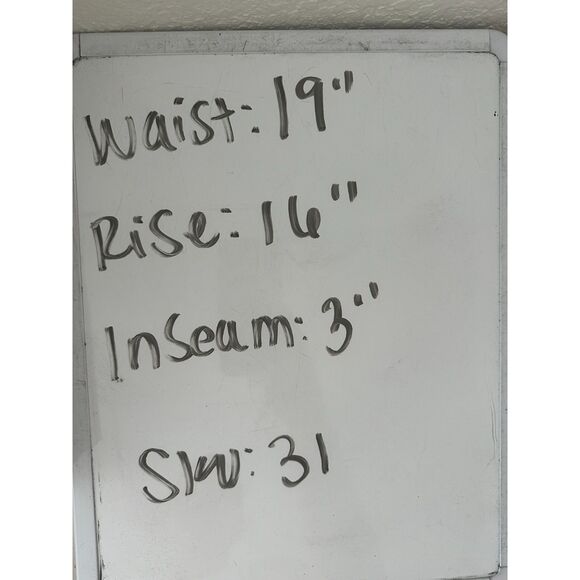 Waist: 19"
Rise: 16"
Inseam: 3"
SKU: 31